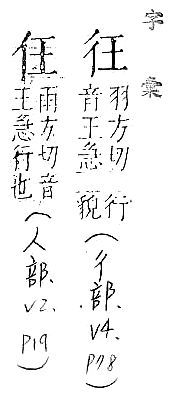 字彙
徍
羽方切
音王急行
貌(彳部.
V4.
P78)
𠈶
雨方切音
王急行也
(人部.
V2.
P19)